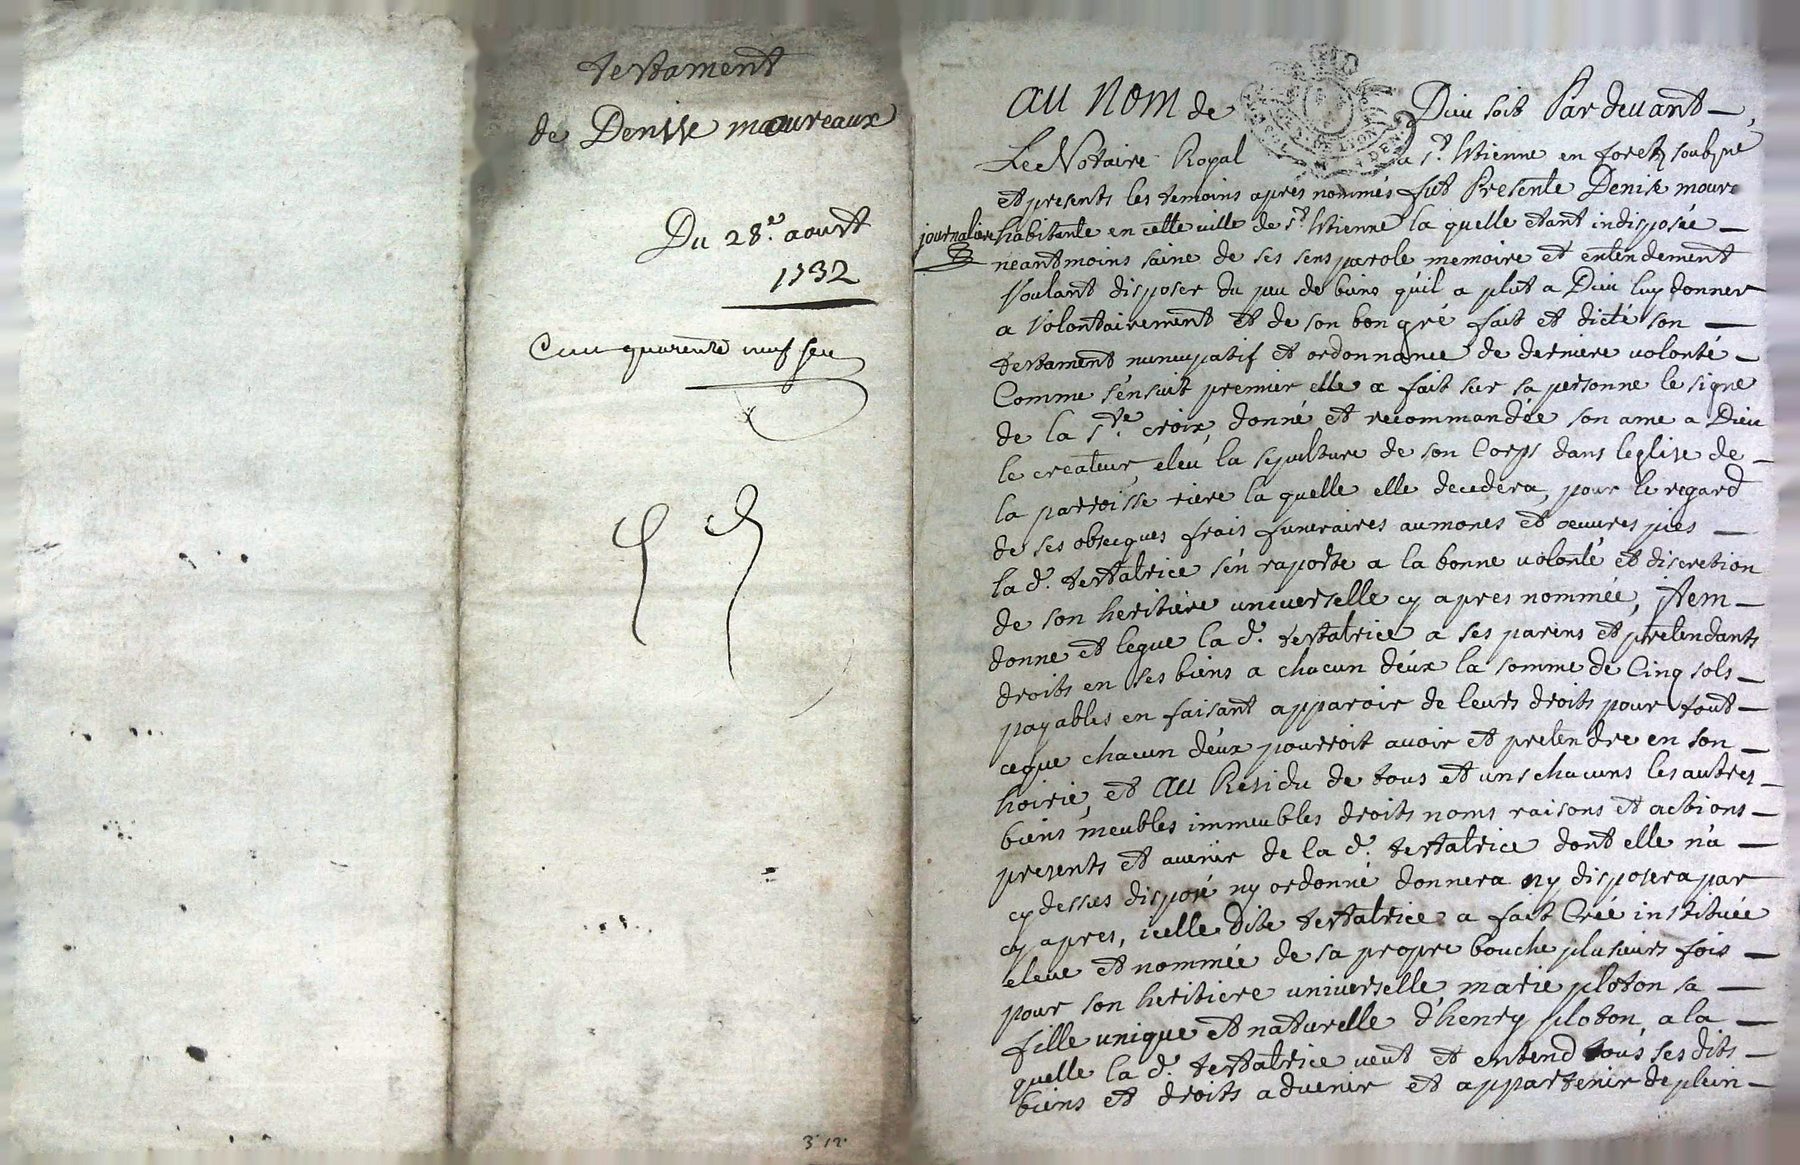 testament
de Denise moureaux
Du 28e. aoust
1732
Cent quarente neuf
3 12
au nom de Dieu soit Par devant
Le Notaire Royal a st. Etienne en forest soubsne
et presents les temoins apres nommés fut Presente Denise moure
journaliere habitante en cette ville de st. Etienne la quelle etant indisposée
neantmoins saine de ses sens parole memoire et entendement
Voulant disposer du peu de biens qu'il a plut a Dieu luy donner
a Volontairement et de son bon gré fait et dicté son
testament nuncupatif et ordonnance de derniere volonté
Comme s'ensuit premier elle a fait sur sa personne le signe
de la ste. croix, donné et recommandée son ame a Dieu
le createur, eleu la sepulture de son Corps dans leglise de
la parroisse riere la quelle elle decedera, pour le regard
de ses obseques frais funeraires aumones et oeuvres pies
la d. testatrice s'en raporte a la bonne volonté et discretion
de son heritiere universelle cy apres nommée, Item
donne et legue la d. testatrice a ses parens et pretendants
droits en ses biens a chacun d'eux la somme de Cinq sols
payables en faisant apparoir de leurs droits pour tout
ceque chacun d'eux pourroit avoir et pretendre en son
hoirie, et au Residu de tous et uns chacuns les autres
biens meubles immeubles droits noms raisons et actions
presents et avenir de la d. testatrice dont elle n'a
cy dessus disposé ny ordonné donnera ny disposera par
cy apres, icelle dite testatrice a fait Créé instituée
eleue et nommée de sa propre bouche plusieurs fois
pour son heritiere universelle marie ploton sa
fille unique et naturelle d'henry ploton, a la
quelle la d. testatrice veut et entend tous ses dits
biens et droits advenir et appartenir de plein